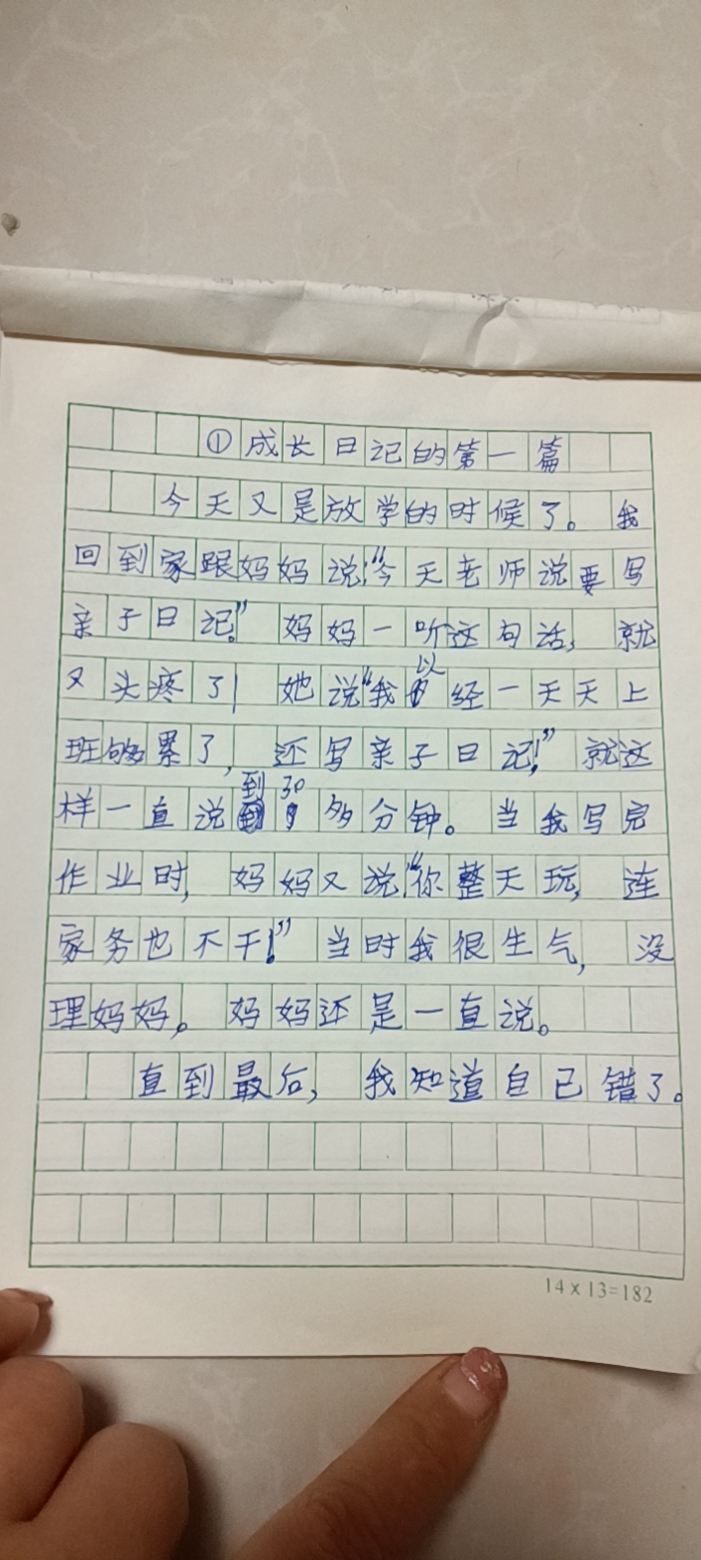 ①成长日记的第一篇
今天又是放学的时候了。我
回到家跟妈妈说:“今天老师说要写
亲子日记。”妈妈一听这句话,就
又头疼了!她说“我以经一天天上
班够累了,还写亲子日记!”就这
样一直说到30多分钟。当我写完
作业时,妈妈又说“你整天玩,连
家务也不干!”当时我很生气,没
理妈妈。妈妈还是一直说。
直到最后,我知道自己错了。
14×13=182